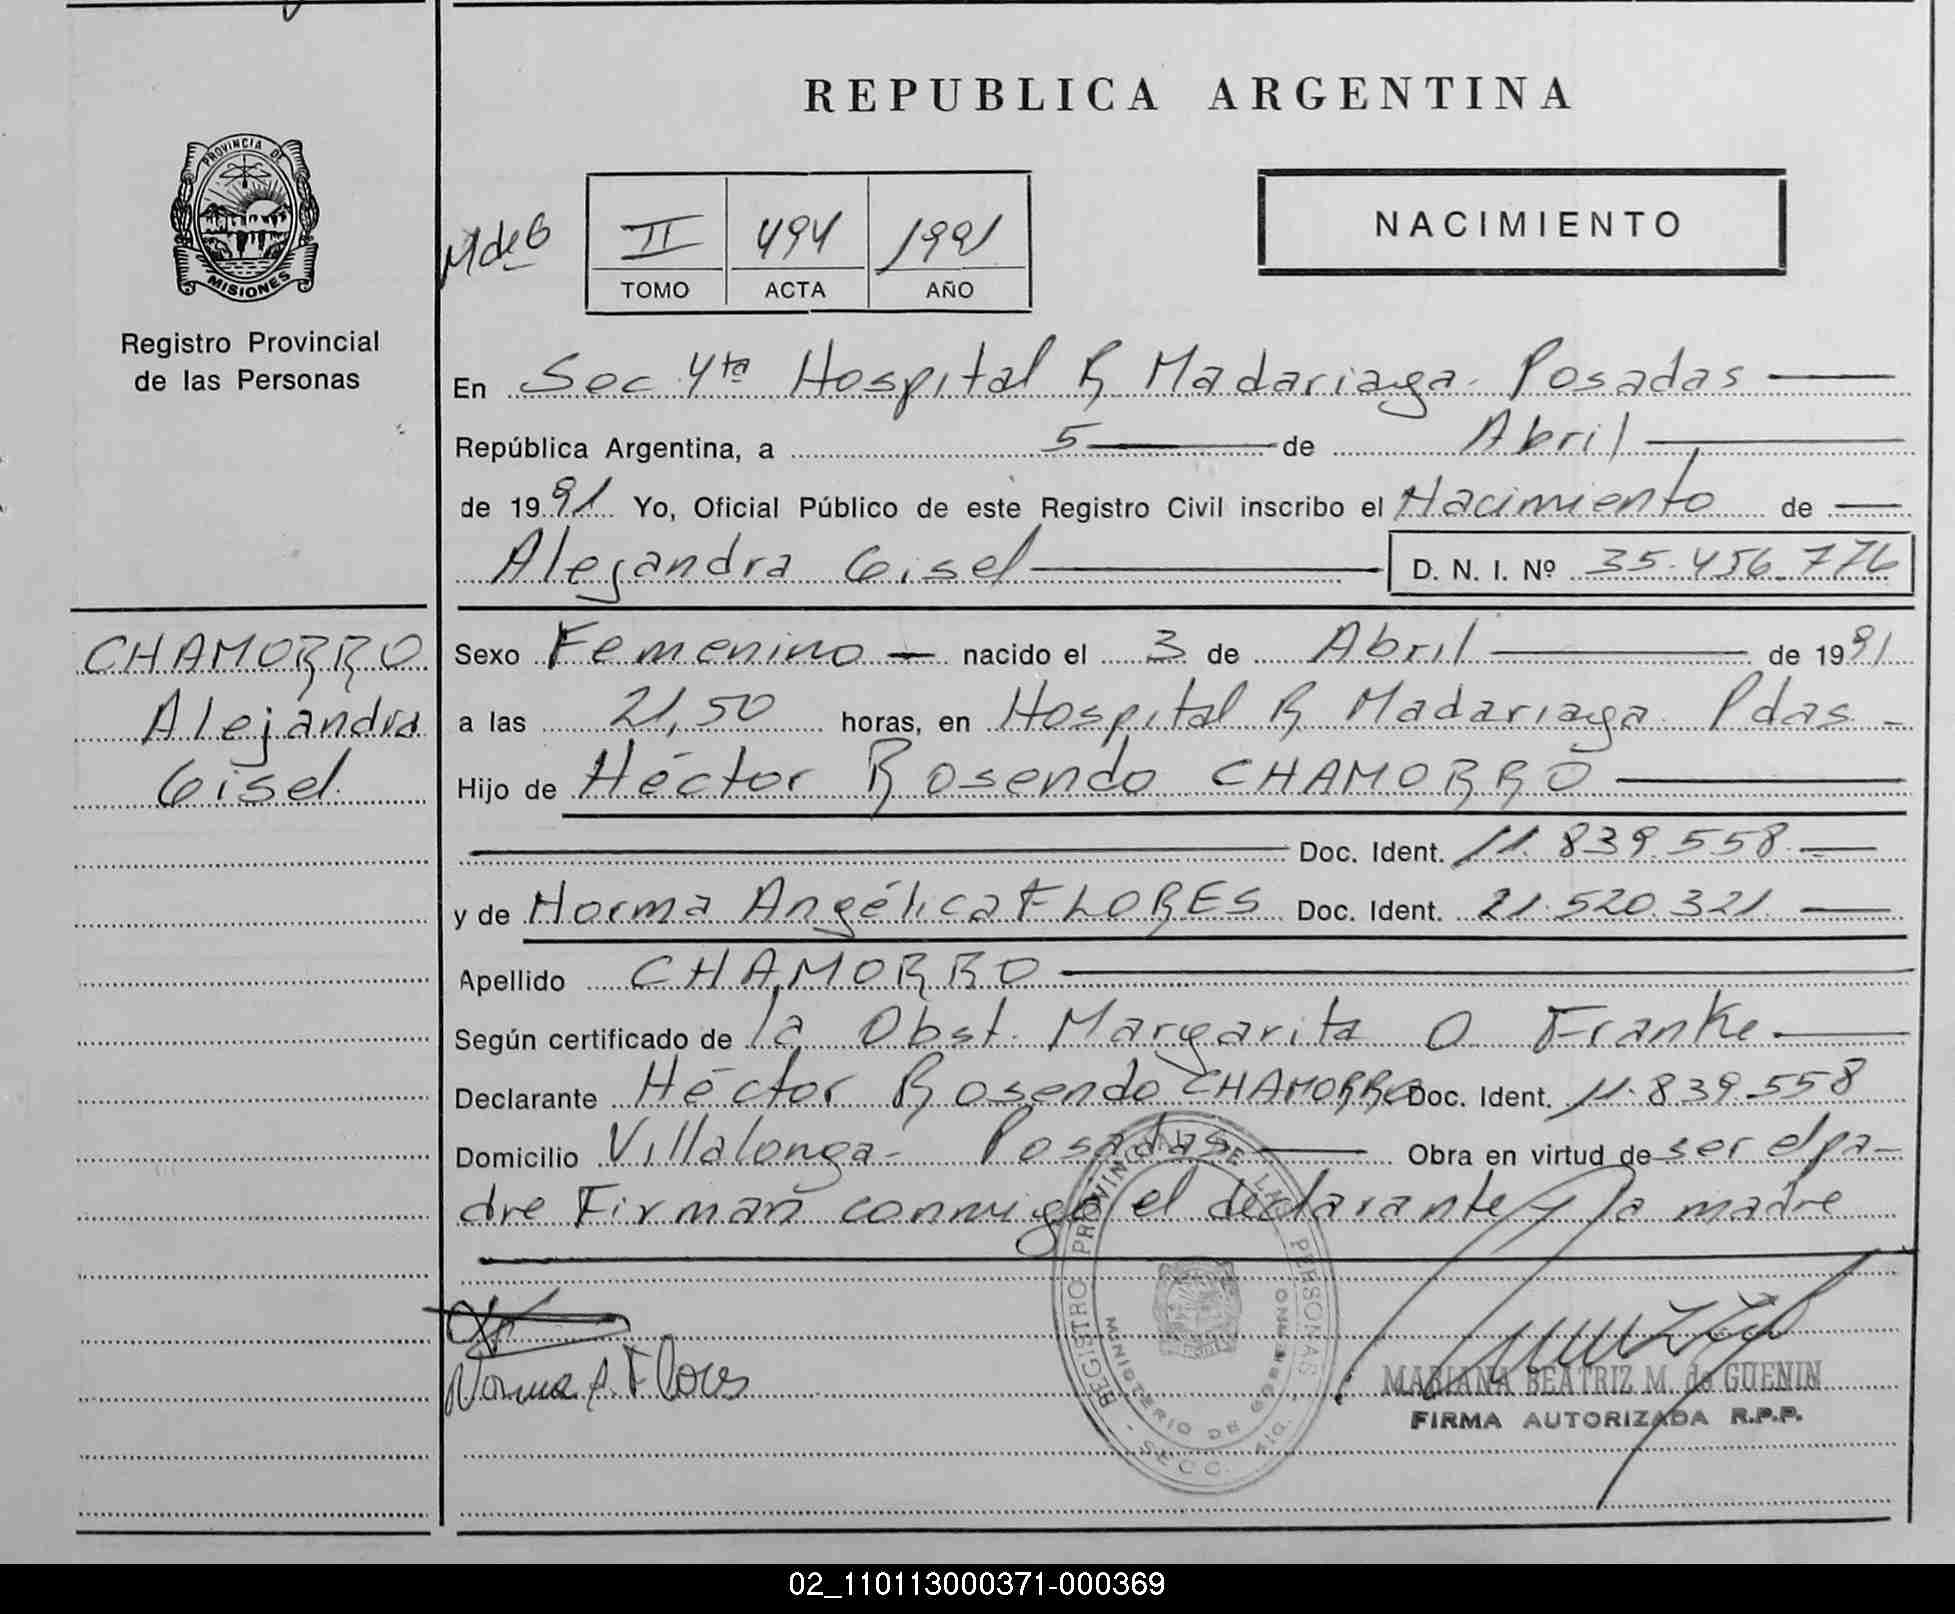 REPUBLICA ARGENTINA
PROVINCIA DE
MISIONES
Registro Provincial
de las Personas
MdeG
II 494 1991
TOMO ACTA AÑO
NACIMIENTO
En Sec 4ta Hospital R Madariaga. Posadas
República Argentina, a 5 de Abril
de 1991 Yo, Oficial Público de este Registro Civil inscribo el Nacimiento de
Alejandra Gisel D. N. I. Nº 35.456.776
CHAMORRO
Alejandra
Gisel.
Sexo Femenino nacido el 3 de Abril de 1991
a las 21,50 horas, en Hospital R Madariaga Pdas
Hijo de Héctor Rosendo CHAMORRO
Doc. Ident. 11.839.558
y de Norma Angélica FLORES Doc. Ident. 21.520.321
Apellido CHAMORRO
Según certificado de la Obst. Margarita O Franke
Declarante Héctor Rosendo CHAMORRO Doc. Ident. 11.839.558
Domicilio Villalonga- Posadas Obra en virtud de ser el pa-
dre Firman conmigo el declarante y la madre
Norma A. Flores
REGISTRO PROVINCIAL DE LAS PERSONAS
MINISTERIO DE GOBIERNO
SECC. 4ta.
MARIANA BEATRIZ M. de GUENIN
FIRMA AUTORIZADA R.P.P.
02_110113000371-000369